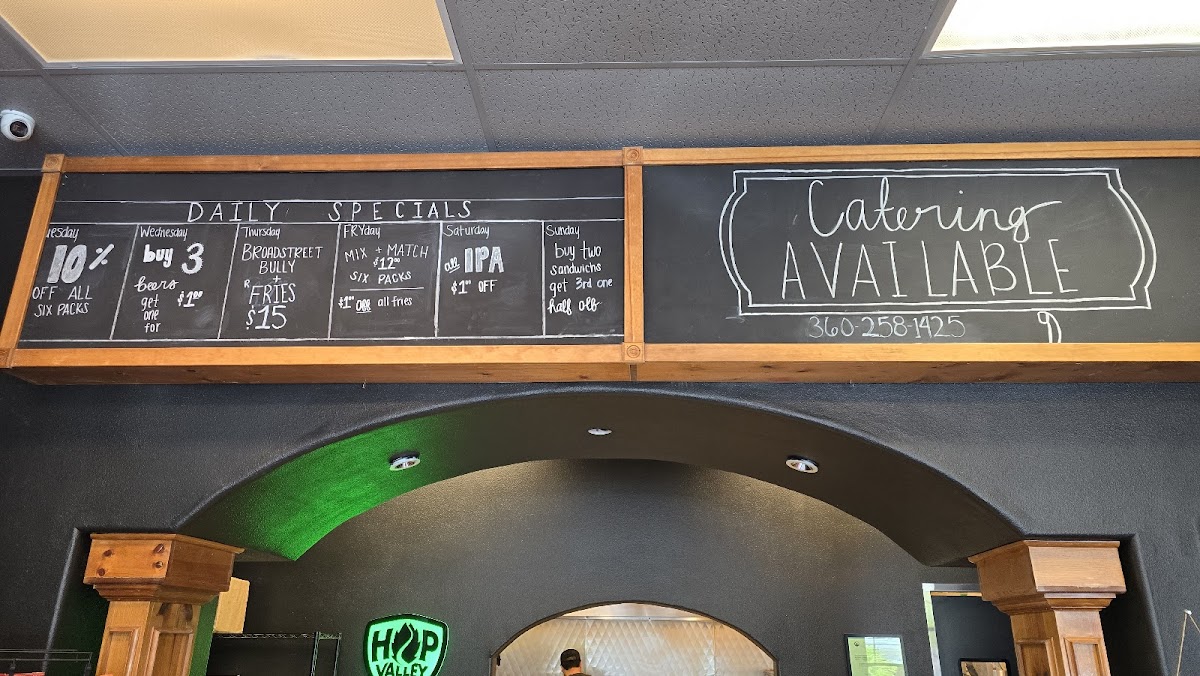 DAILY SPECIALS
uesday
10%
OFF ALL
SIX PACKS
Wednesday
buy 3
beers
get $1.00
one
for
Thursday
BROADSTREET
BULLY
+
FRIES
$15
FRYday
MIX + MATCH
$12.00
SIX PACKS
$1.00 OFF all fries
Saturday
all IPA
$1.00 OFF
Sunday
buy two
sandwichs
get 3rd one
half off
Catering
AVAILABLE
360-258-1425
HOP
VALLEY